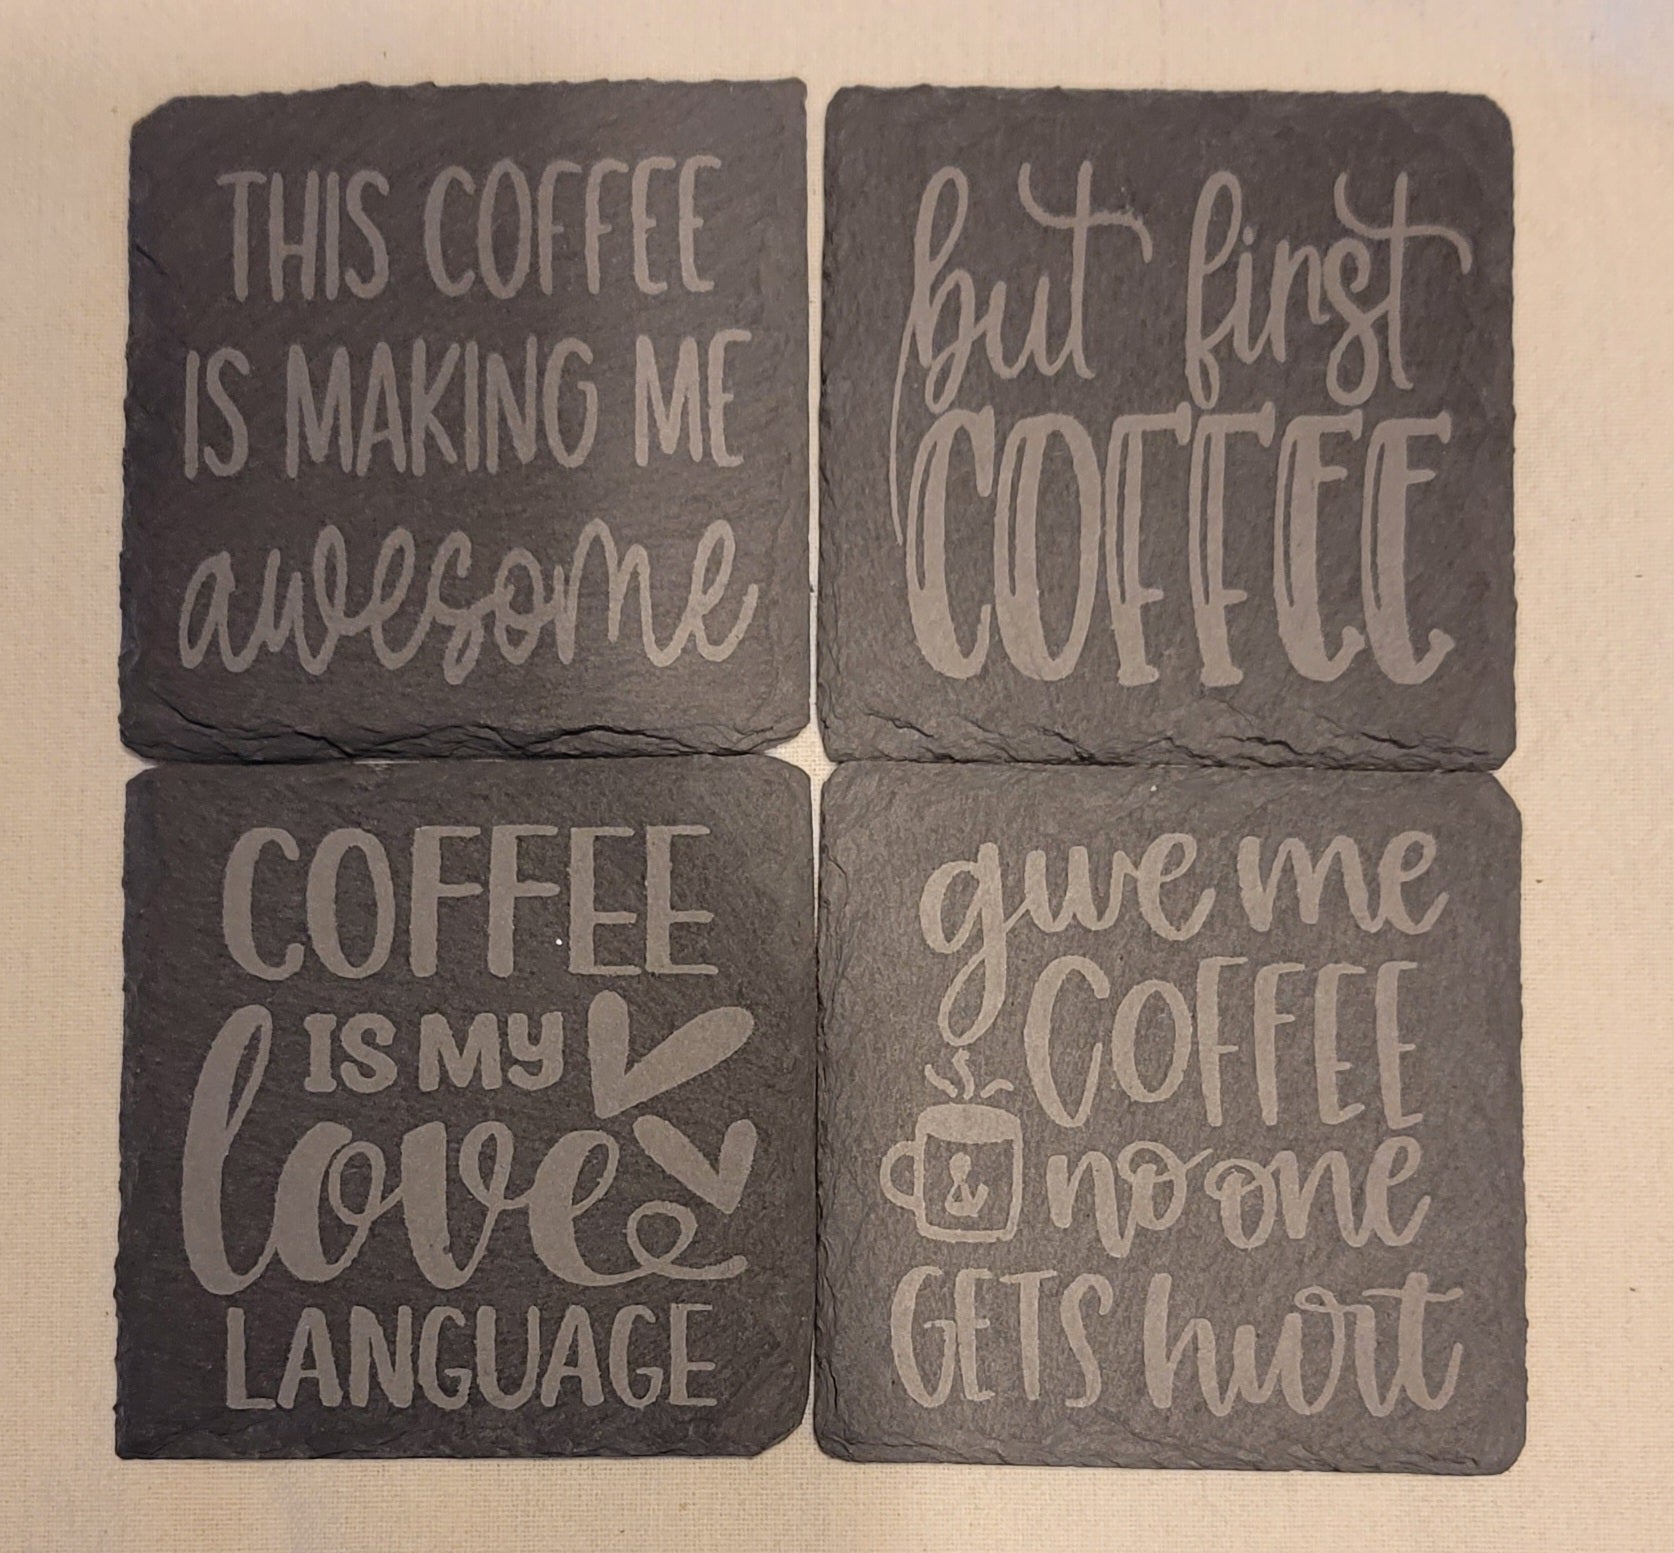 THIS COFFEE
IS MAKING ME
awesome
but first
COFFEE
COFFEE
IS MY
love
LANGUAGE
give me
COFFEE
& no one
GETS hurt